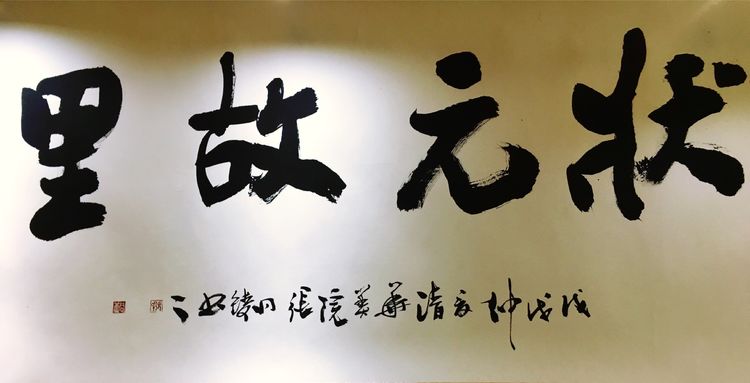 狀元故里
戊戌仲夏清華美院張